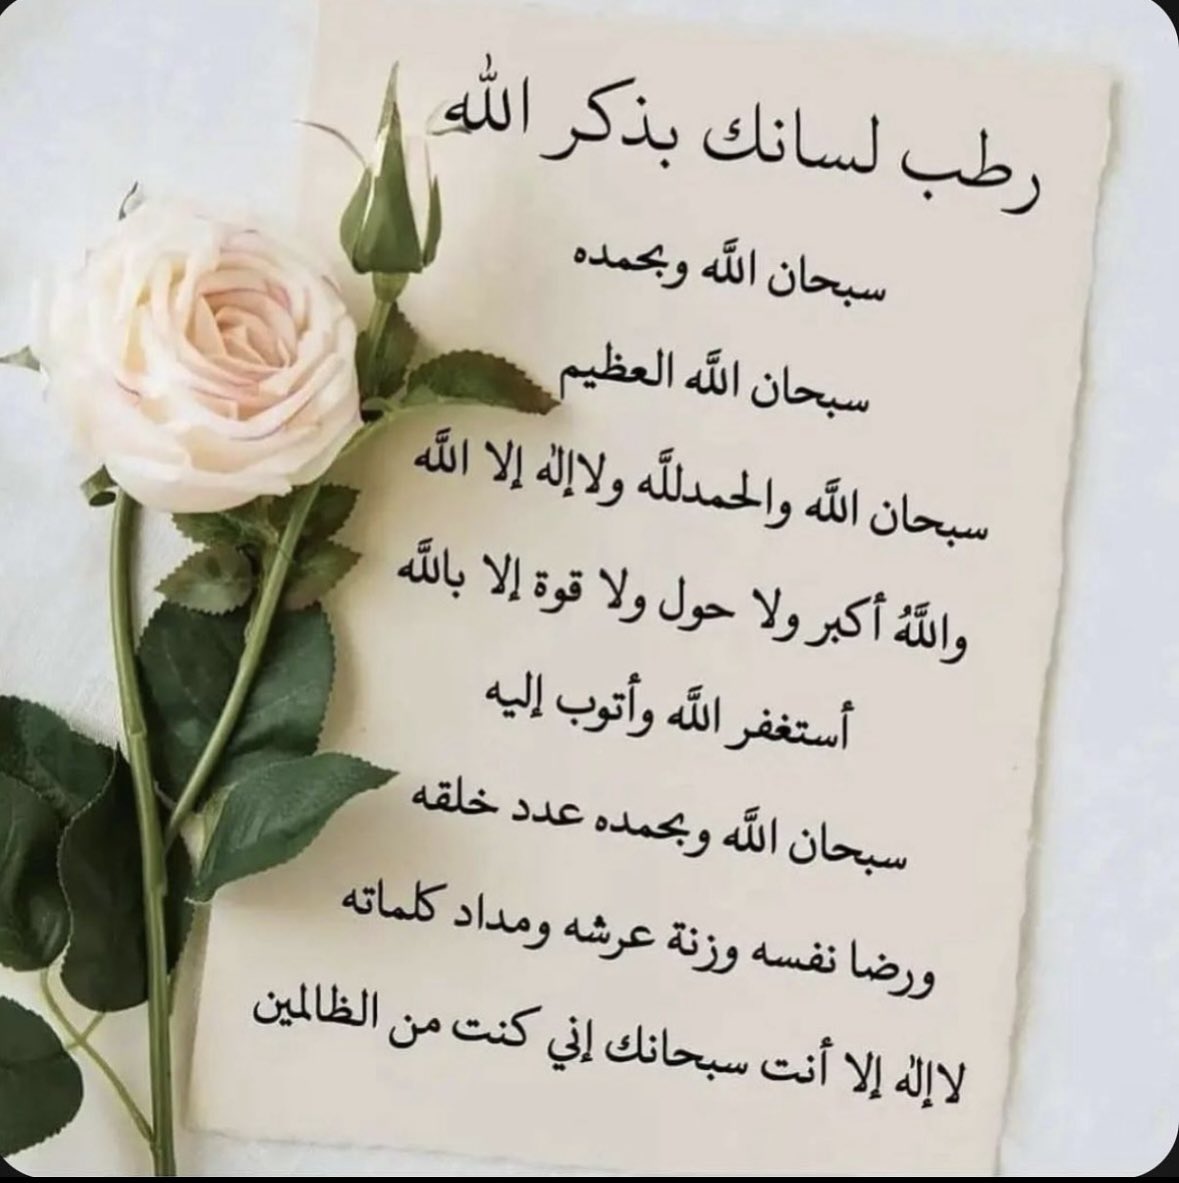 رطب لسانك بذكر الله
سبحان اللَّه وبحمده
سبحان اللَّه العظيم
سبحان اللَّه والحمدللَّه ولاإلٰه إلا اللَّه
واللَّهُ أكبر ولا حول ولا قوة إلا باللَّه
أستغفر اللَّه وأتوب إليه
سبحان اللَّه وبحمده عدد خلقه
ورضا نفسه وزنة عرشه ومداد كلماته
لاإلٰه إلا أنت سبحانك إني كنت من الظالمين